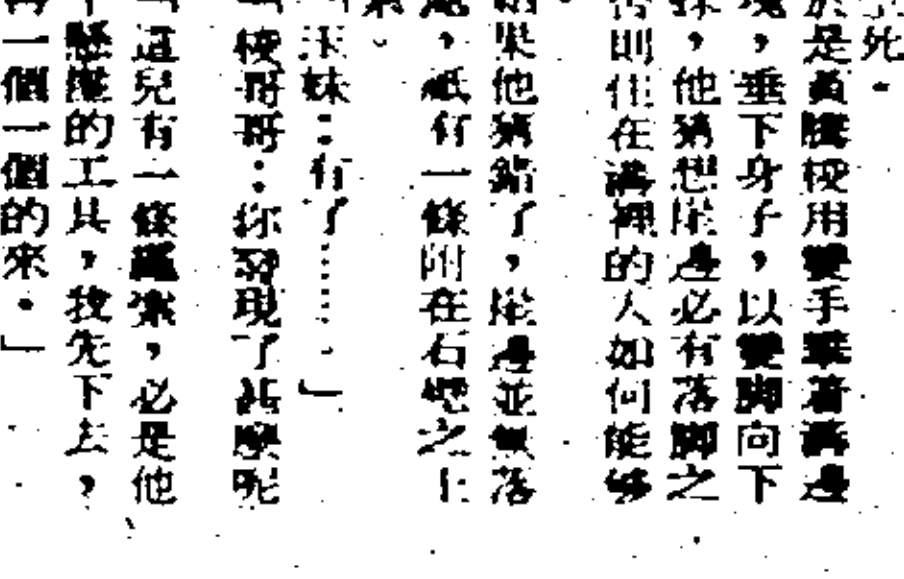 死。
於是黃騰梭用雙手攀着溝邊
塊，垂下身子，以雙脚向下
探，他猜想崖邊必有落脚之
否則住在溝裡的人如何能够
。
結果他猜錯了，崖邊並無落
處，祇有一條附在石壁之上
索。
妹：有了……。」
「梭哥哥：你發現了甚麼呢
「這兒有一條繩索，必是他
下懸崖的工具，我先下去，
再一個一個的來。」